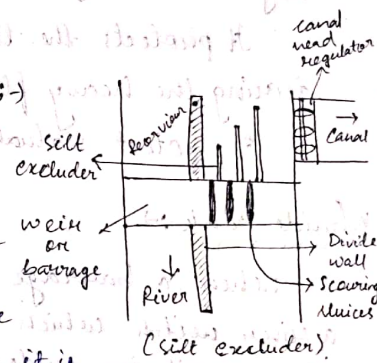 canal
head
regulator
:-)
Reservior
Canal
silt
excluder
weir
or
barrage
River
Divide
wall
Scouring
sluices
(silt excluder)
it is